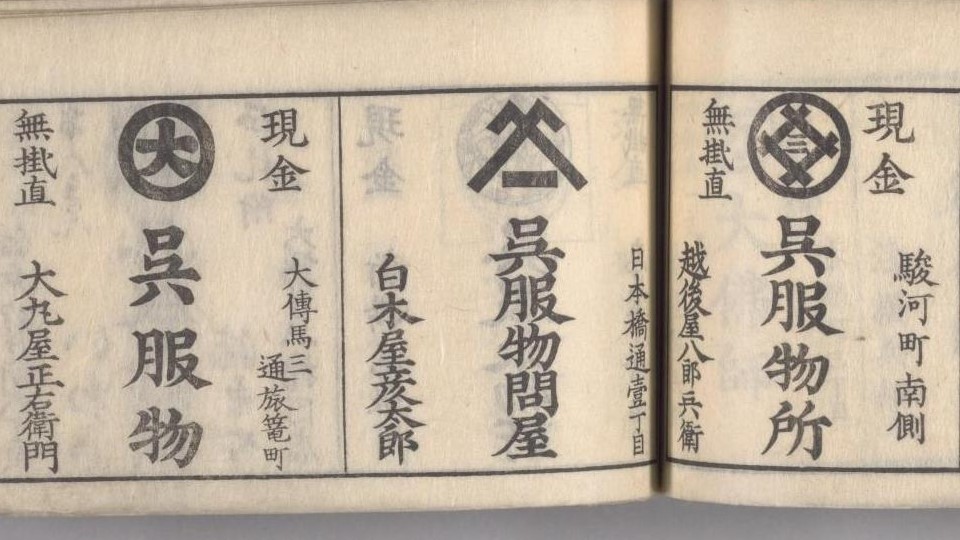 現金
駿河町南側
三
呉服物所
無掛直
越後屋八郎兵衛
日本橋通壹丁目
呉服物問屋
白木屋彦太郎
現金
大傳馬三
通旅篭町
大
呉服物
無掛直
大丸屋正右衛門